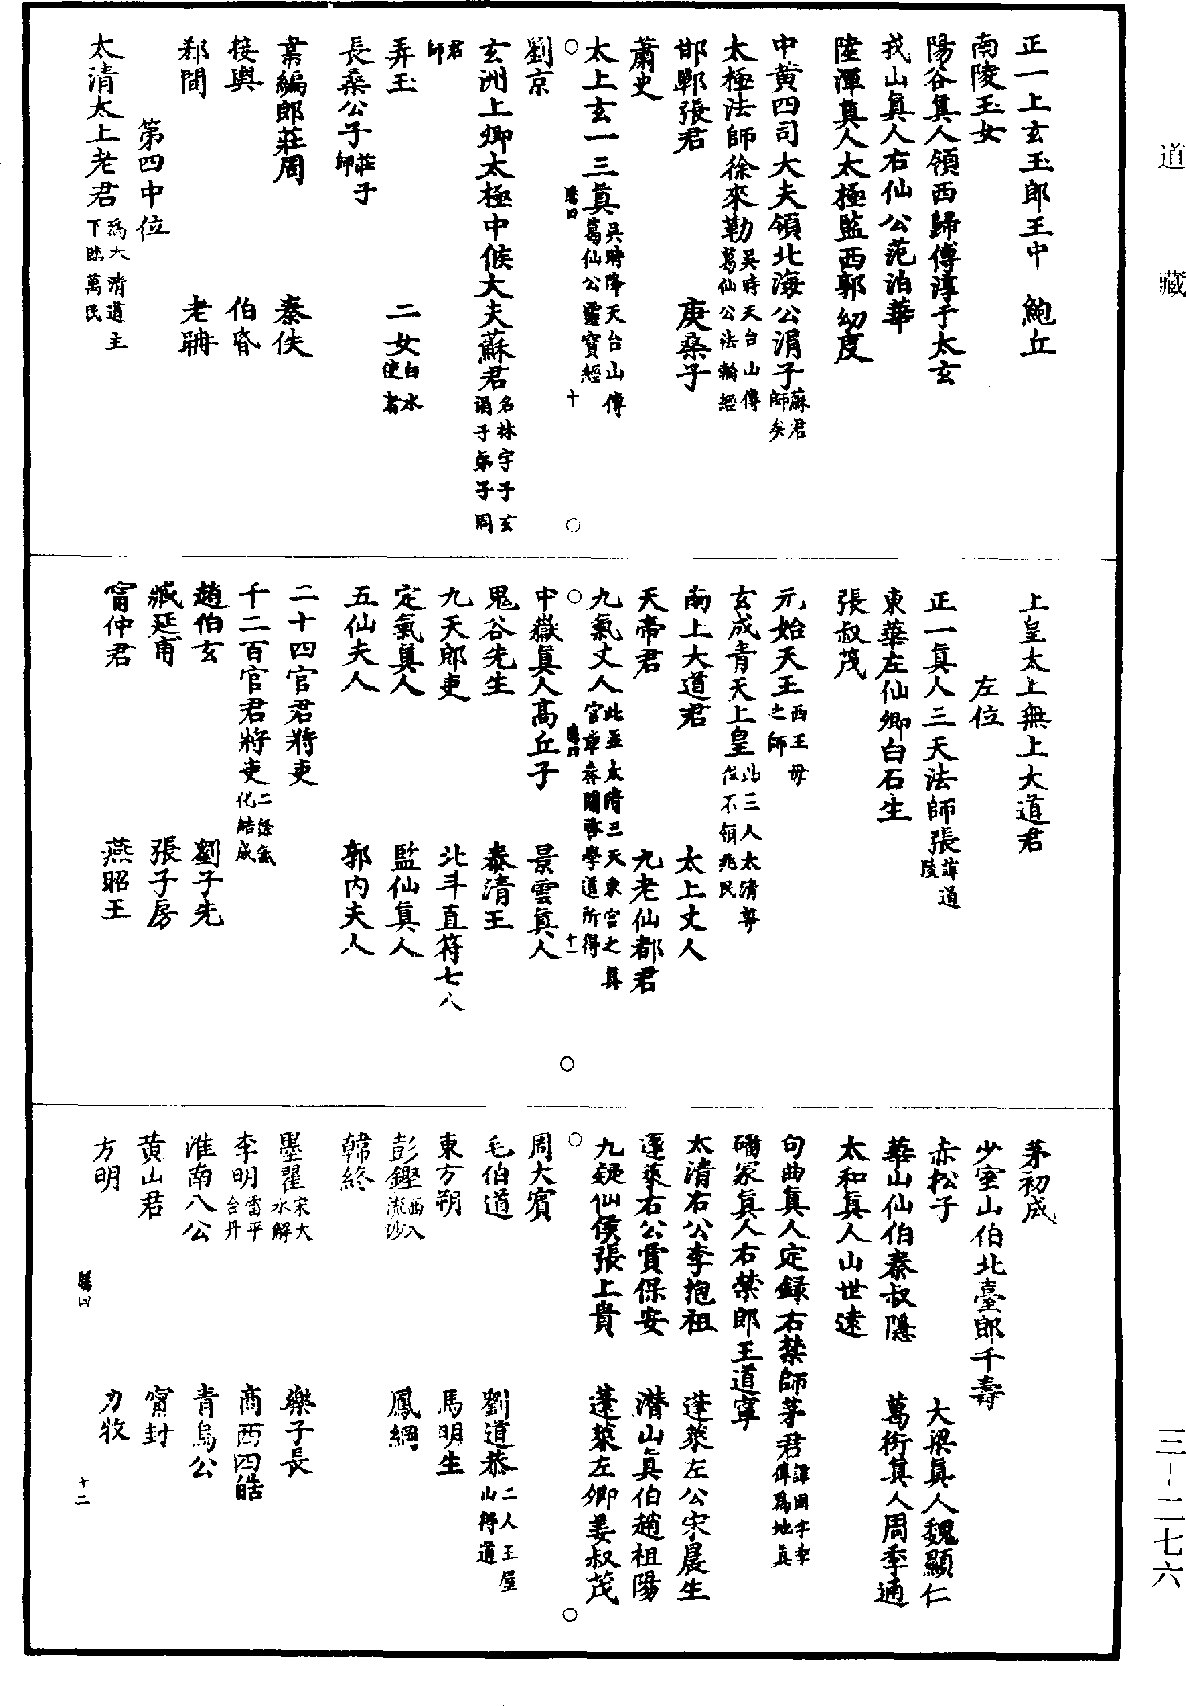 道藏
正一上玄玉郎王中　鮑丘
南陵玉女
陽谷眞人領西歸傅淳于太玄
戎山眞人右仙公范泊華
陸渾眞人太極監西郭幼度
中黄四司大夫領北海公涓子蘇君師矣
太極法師徐來勒吳時天台山傳葛仙公法輪經
邯鄲張君　庚桑子
蕭史
太上玄一三眞吳時降天台山傳葛仙公靈寶經
騰四　十
劉京
玄洲上卿太極中候大夫蘇君名林字子玄涓子弟子周君師
弄玉　二女白水使者
長桑公子莊子師
韋編郎莊周　秦佚
接輿　伯昏
郄間　老聃
第四中位
太清太上老君爲太清道主下臨萬民
上皇太上無上大道君
左位
正一眞人三天法師張諱道陵
東華左仙卿白石生
張叔茂
元始天王西王母之師
玄成青天上皇此三人太清尊位不領兆民
南上大道君　太上丈人
天帝君　九老仙都君
九氣丈人此並太清三天東宮之眞官章奏關啓學道所得
騰四　十一
中嶽眞人高丘子　景雲眞人
鬼谷先生　泰清王
九天郎吏　北斗直符七人
定氣眞人　監仙眞人
五仙夫人　郭內夫人
二十四官君將吏
千二百官君將吏二條氣化結成
趙伯玄　劉子先
臧延甫　張子房
甯仲君　燕昭王
茅初成
少室山伯北臺郎千壽
赤松子　大梁眞人魏顯仁
華山仙伯秦叔隱　葛衍眞人周季通
太和眞人山世遠
句曲眞人定録右禁師茅君諱固字季偉爲地眞
磻冢眞人右禁郎王道寧
太清右公李抱祖　蓬萊左公宋晨生
蓬萊右公賈保安　潛山眞伯趙祖陽
九疑仙侯張上貴　蓬萊左卿姜叔茂
周大賓
毛伯道　劉道恭二人王屋山得道
東方朔　馬明生
彭鏗西入流沙　鳳綱
韓終
墨翟宋大水解　樂子長
李明雷平合丹　商西四皓
淮南八公　青烏公
黄山君　甯封
方明　力牧
騰四　十二
三－二七六